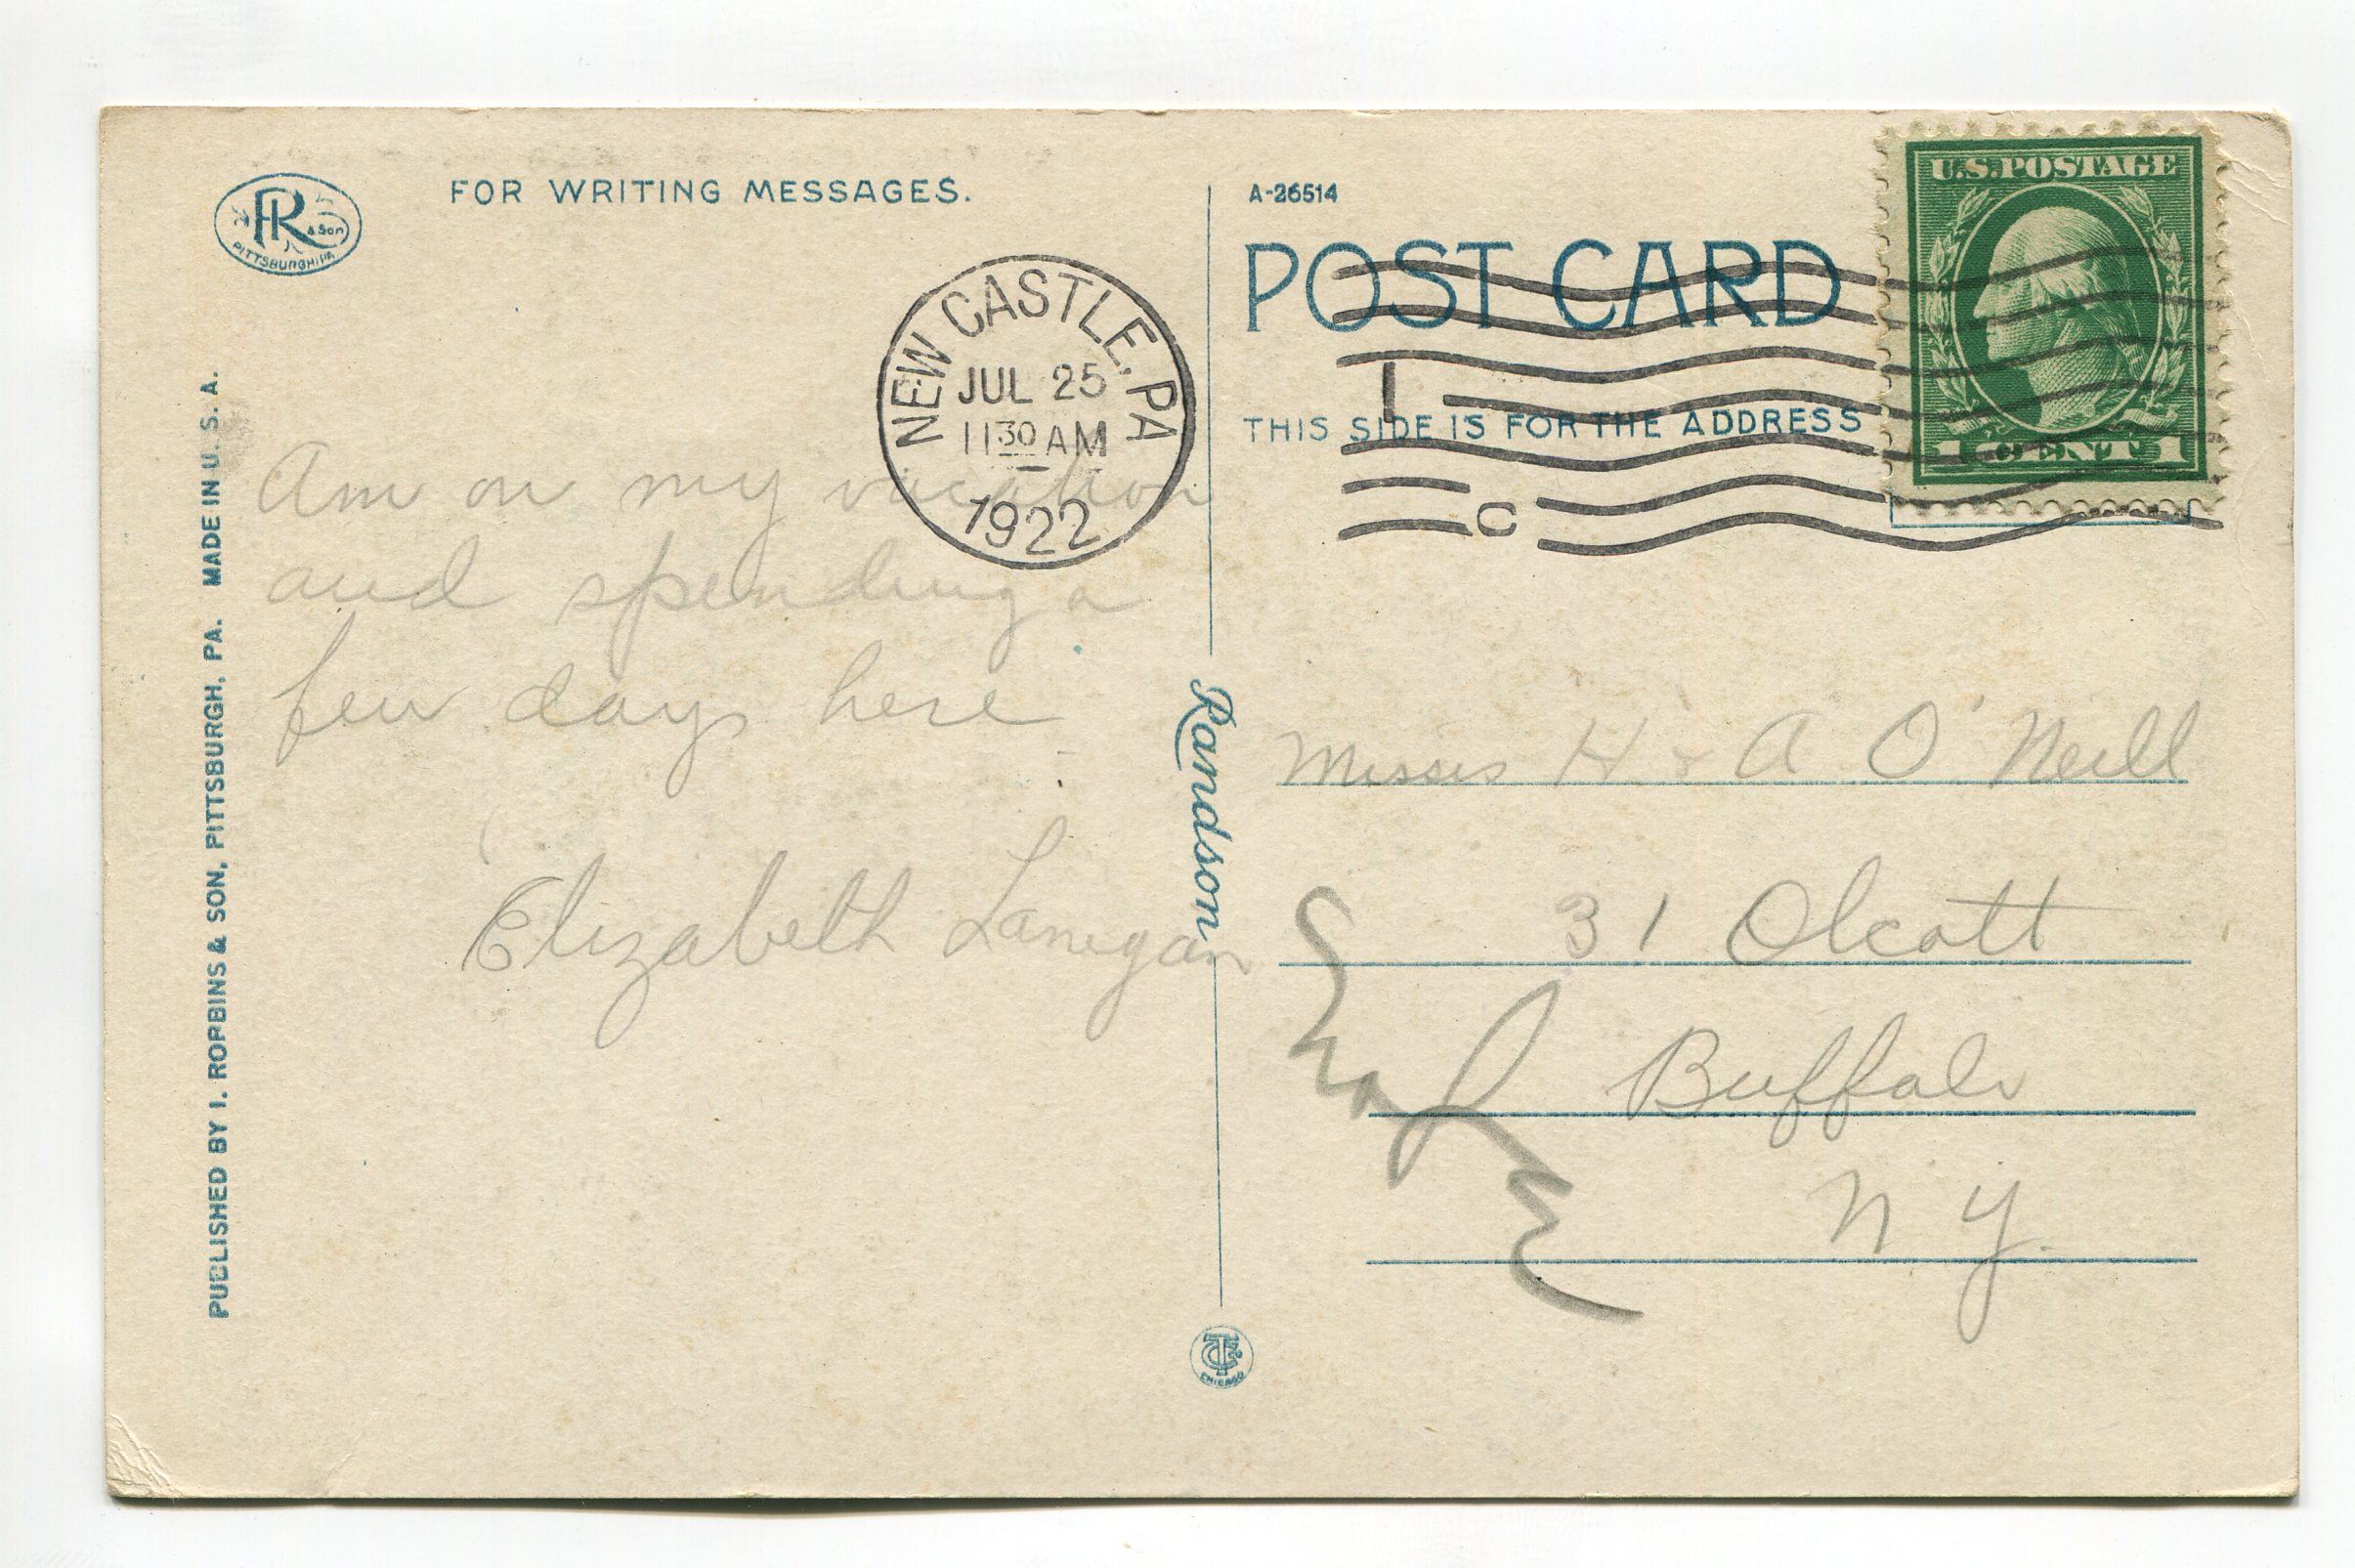 R & Son
PITTSBURGH, PA
FOR WRITING MESSAGES.
PUBLISHED BY I. ROBBINS & SON, PITTSBURGH, PA. MADE IN U. S. A.
NEW CASTLE, PA
JUL 25
11 30 AM
1922
Am on my vacation
and spending a
few days here
Elizabeth Lanegan
Randson
CHICAGO
A-26514
POST CARD
THIS SIDE IS FOR THE ADDRESS
1
C
U.S. POSTAGE
1 CENT 1
Misses H & A O'Neill
31 Olcott
Buffalo
N Y.